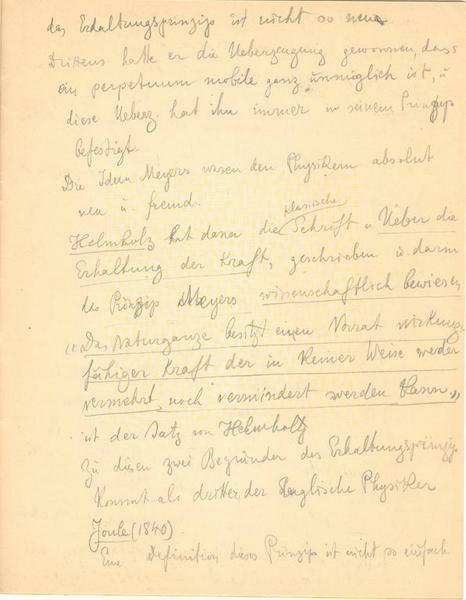 das Erhaltungsprinzip ist nicht so neu
Drittens hatte er die Ueberzeugung gewonnen, dass
ein perpetuum mobile ganz unmöglich ist, u
diese Ueberz. hat ihn immer in seinem Prinzip
befestigt.
Die Ideen Meyers waren den Physikern absolut
neu u. fremd.
klassische
Helmholz hat dann die Schrift „Ueber die
Erhaltung der Kraft„ geschrieben u. darin
das Prinzip Meyers wissenschaftlich bewiesen
„Das Naturganze besitzt einen Vorrat wirkungs
fähiger Kraft der in keiner Weise weder
vermehrt, noch vermindert werden kann„
ist der Satz von Helmholz
Zu diesen zwei Begründer des Erhaltungsprinzip
kommt als dritter, der Englische Physiker
Joule (1840)
Eine Definition dieses Prinzip ist nicht so einfach